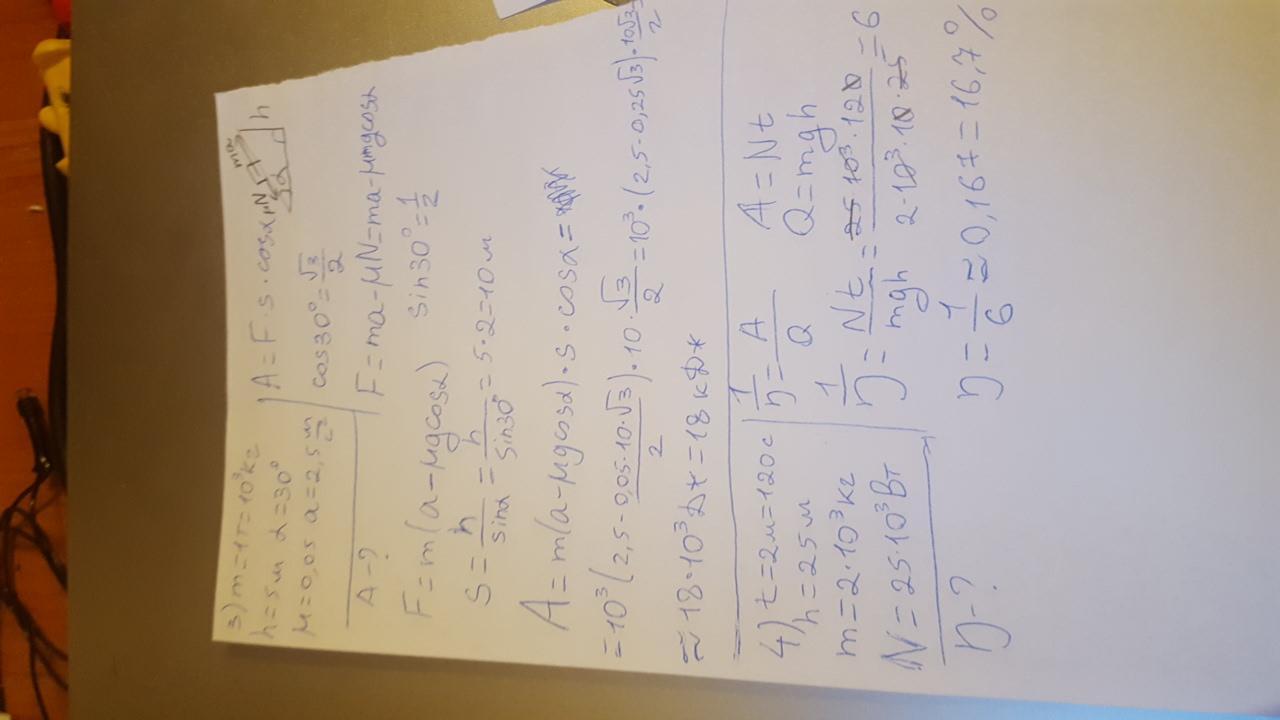 3) m=1т=10³кг
h=5м α=30°
μ=0,05 a=2,5 м/с²
A-?
A=F·s·cosα
cos30°=√3/2
F=ma-μN=ma-μmgcosα
F=m(a-μgcosα) sin30°=1/2
S=h/sinα=h/sin30°=5·2=10м
A=m(a-μgcosα)·s·cosα=
=10³(2,5-0,05·10·√3/2)·10·√3/2=10³·(2,5-0,25√3)·10√3/2
≈18·10³Дж=18кДж
4) t=2м=120с
h=25м
m=2·10³кг
N=25·10³Вт
η-?
1/η=A/Q A=Nt
Q=mgh
1/η=Nt/mgh=25·10³·120/2·10³·10·25=6
η=1/6≈0,167=16,7%